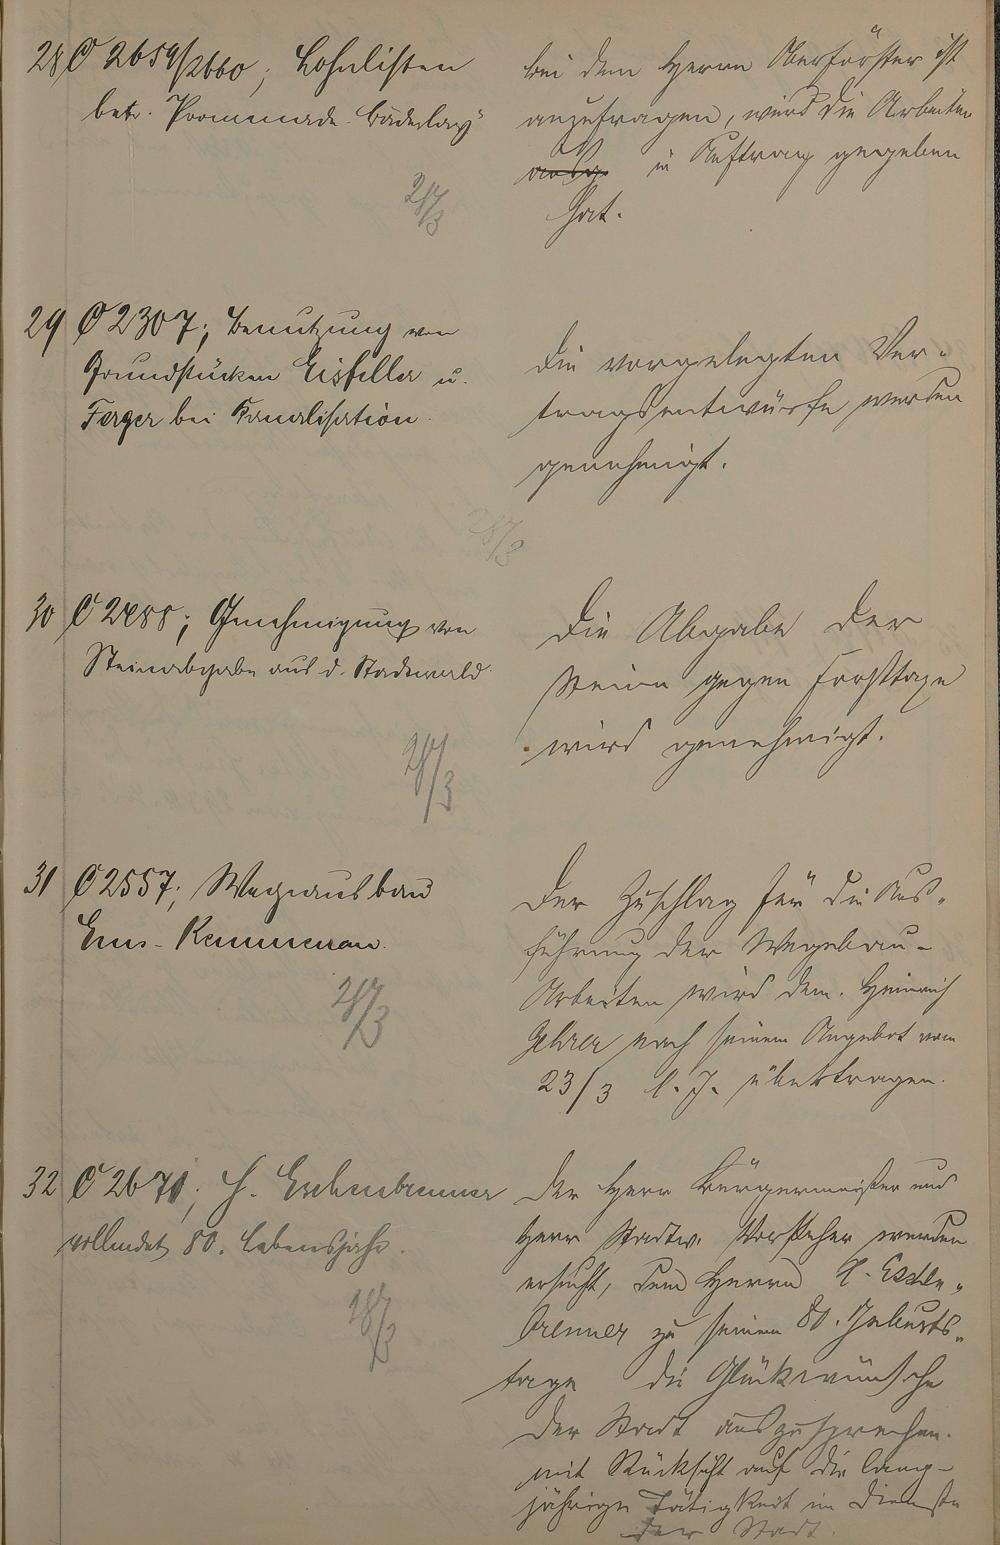 28 C 2659/2660; Lohnlisten
betr. Promenade Bäderlay
28/3
bei dem Herrn Oberförster ist
anzufragen, wer die Arbeiten
in Auftrag gegeben
hat.
29 C 2307; Benutzung von
Grundstücken Eisfeller u.
Ferger bei Kanalisation.
28/3
Die vorgelegten Ver-
tragsentwürfe werden
genehmigt.
30 C 2488; Genehmigung von
Steinabgabe aus d. Stadtwald.
28/3
Die Abgabe der
Steine gegen Forsttaxe
wird genehmigt.
31 C 2557; Wegeausbau
Ems-Kemmenau.
28/3
Der Zuschlag für die Aus-
führung der Wegebau-
Arbeiten wird dem Heinrich
nach seinem Angebot vom
23/3 l. J. übertragen.
32 C 2671; H. Eschenbrenner
vollendet 80. Lebensjahr.
28/3
Der Herr Bürgermeister und
Herr Stadtv. Vorsteher werden
ersucht, dem Herrn H. Esche-
brenner zu seinem 80. Geburts-
tage die Glückwünsche
der Stadt auszusprechen.
mit Rücksicht auf die lang-
jährige Tätigkeit im Dienste
der Stadt.